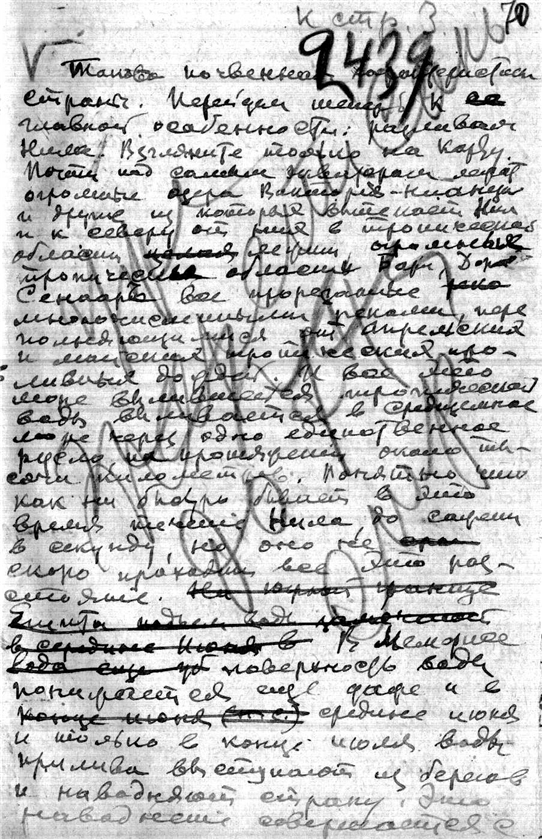 к стр. 3.
70
2439
Такова почвенная характеристика
страны. Перейдем теперь к ее
главной особенности: разливам
Нила. Взгляните только на карту.
Почти под самым экватором лежат
огромные озера Виктория-Нианца
и другие из которых вытекает Нил
и к северу от них в тропической
области лежит огромные
тропические области Барь, Дар-
Сенаар все прорезанные
многочисленными реками, пере
полняющимися от апрельских
и майских тропических про-
ливных дождей. И все это
море вылившейся тропической
воды выливается в Средиземное
море через одно единственное
русло на протяжении около ты-
сячи километров. Понятно что
как ни быстро бывает в это
время течение Нила, до сажени
в секунду, но оно не
скоро проходит все это рас-
стояние. На южной границе
Египта подъем воды замечают
в середине июня в В Мемфисе
вода еще поверхность воды
понижается еще даже и в
конце июня (н.с.) средине июня
и только в конце июля воды
прилива выступают из берегов
и наводняют страну. Это
наводнение совершается с